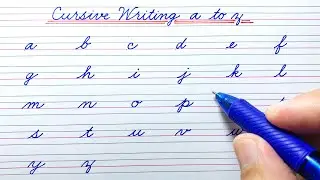 Cursive Writing a to z
a b c d e f
g h i j k l
m n o p
s t u v
y z